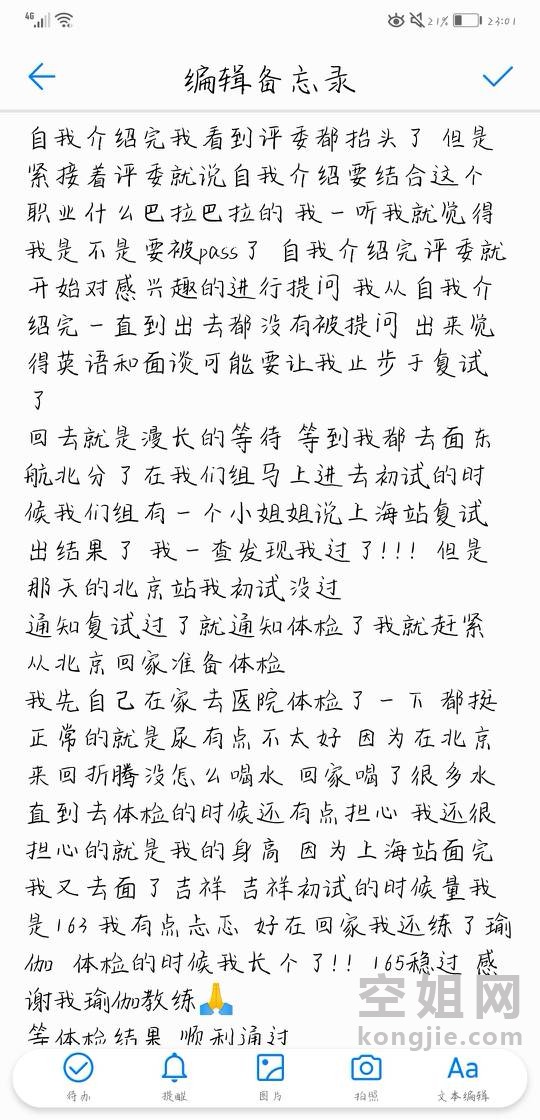 4G 21% 23:01
编辑备忘录
自我介绍完我看到评委都抬头了 但是
紧接着评委就说自我介绍要结合这个
职业什么巴拉巴拉的 我一听我就觉得
我是不是要被pass了 自我介绍完评委就
开始对感兴趣的进行提问 我从自我介
绍完一直到出去都没有被提问 出来觉
得英语和面谈可能要让我止步于复试
了
回去就是漫长的等待 等到我都去面东
航北分了在我们组马上进去初试的时
候我们组有一个小姐姐说上海站复试
出结果了 我一查发现我过了!!! 但是
那天的北京站我初试没过
通知复试过了就通知体检了我就赶紧
从北京回家准备体检
我先自己在家去医院体检了一下 都挺
正常的就是尿有点不太好 因为在北京
来回折腾没怎么喝水 回家喝了很多水
直到去体检的时候还有点担心 我还很
担心的就是我的身高 因为上海站面完
我又去面了吉祥 吉祥初试的时候量我
是163 我有点忐忑 好在回家我还练了瑜
伽 体检的时候我长个了!! 165稳过 感
谢我瑜伽教练🙏
等体检结果 顺利通过
空姐网
kongjie.com
待办 提醒 图片 拍照 Aa 文本编辑